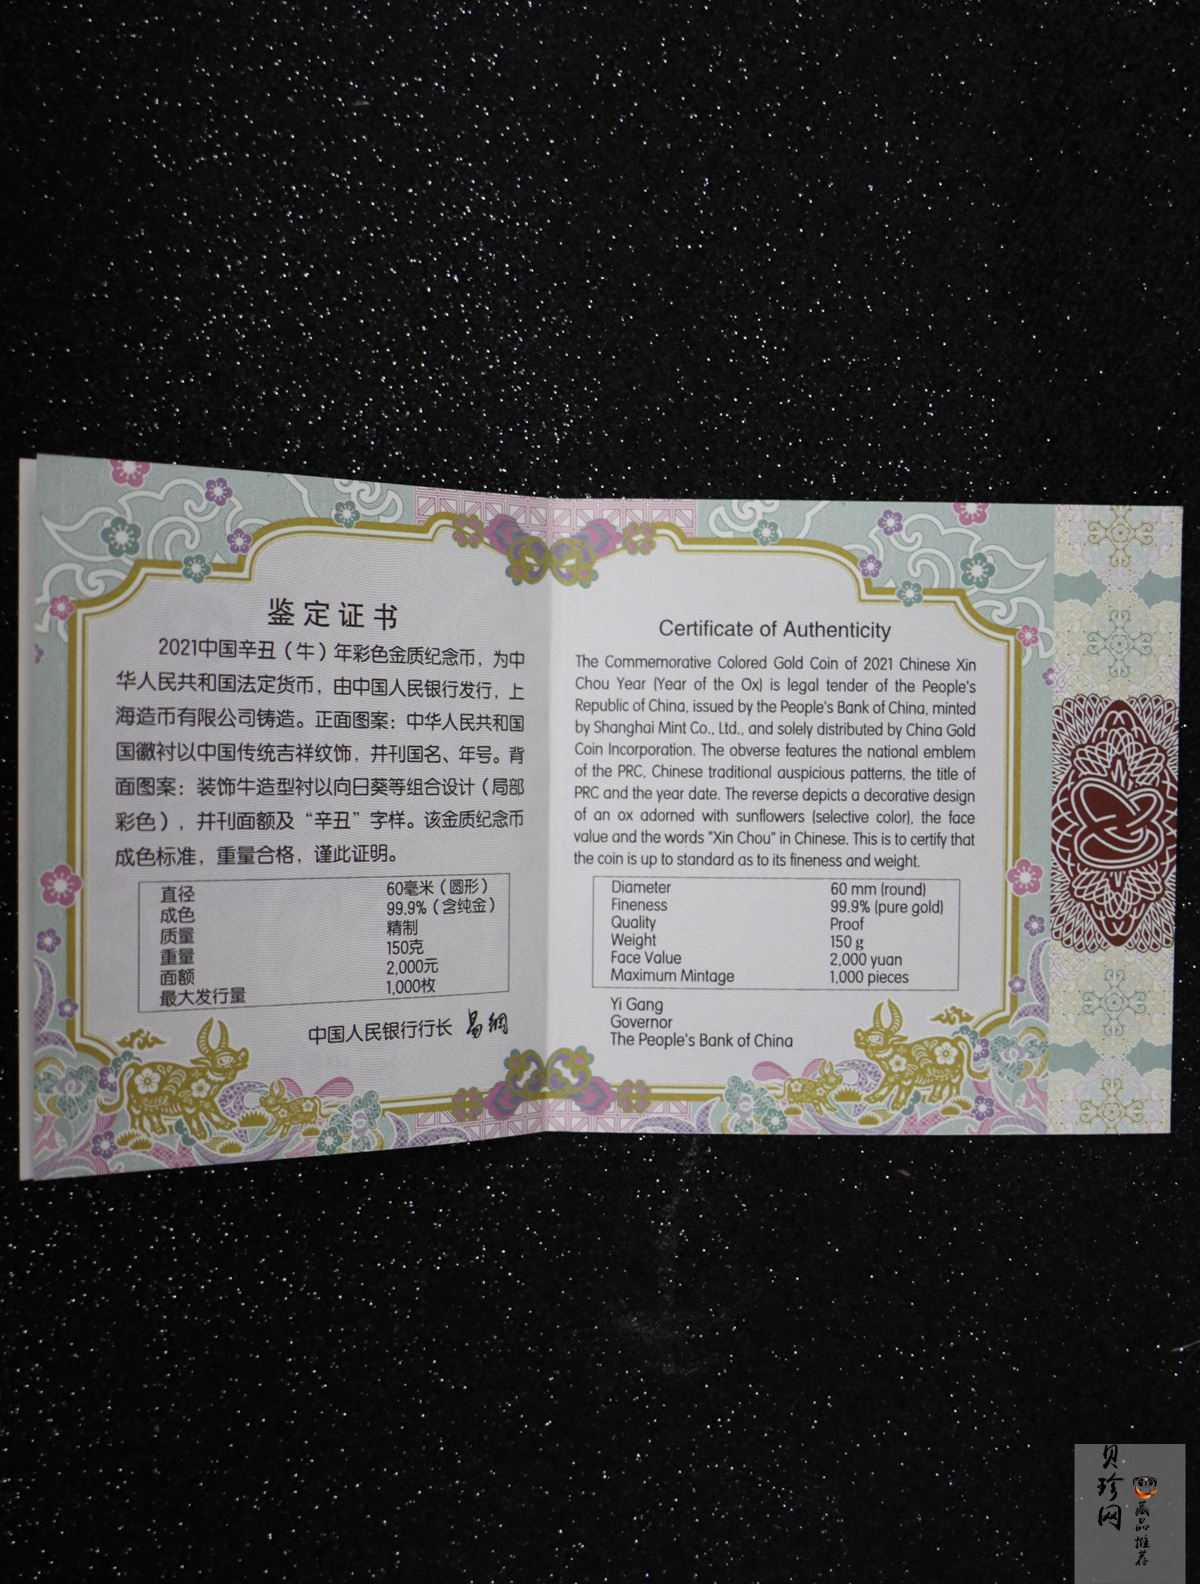 鉴定证书
2021中国辛丑（牛）年彩色金质纪念币，为中
华人民共和国法定货币，由中国人民银行发行，上
海造币有限公司铸造。正面图案：中华人民共和国
国徽衬以中国传统吉祥纹饰，并刊国名、年号。背
面图案：装饰牛造型衬以向日葵等组合设计（局部
彩色），并刊面额及“辛丑”字样。该金质纪念币
成色标准，重量合格，谨此证明。
直径 60毫米（圆形）
成色 99.9%（含纯金）
质量 精制
重量 150克
面额 2,000元
最大发行量 1,000枚
中国人民银行行长 易纲
Certificate of Authenticity
The Commemorative Colored Gold Coin of 2021 Chinese Xin
Chou Year (Year of the Ox) is legal tender of the People's
Republic of China, issued by the People's Bank of China, minted
by Shanghai Mint Co., Ltd., and solely distributed by China Gold
Coin Incorporation. The obverse features the national emblem
of the PRC, Chinese traditional auspicious patterns, the title of
PRC and the year date. The reverse depicts a decorative design
of an ox adorned with sunflowers (selective color), the face
value and the words "Xin Chou" in Chinese. This is to certify that
the coin is up to standard as to its fineness and weight.
Diameter 60 mm (round)
Fineness 99.9% (pure gold)
Quality Proof
Weight 150 g
Face Value 2,000 yuan
Maximum Mintage 1,000 pieces
Yi Gang
Governor
The People's Bank of China
贝珍网
藏品推荐